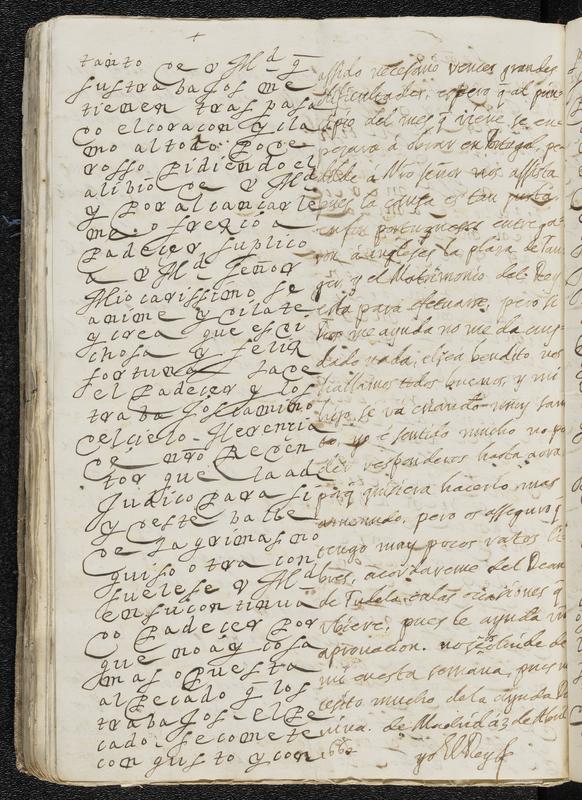 tanto de v Md q
sus trabajos me
tienen traspasa
do el coracon y cla
mo al todo Pode
rosso Pidiendo el
alibio de v Md
y Por alcancarle
me ofrezco a
Padecer suplico
a v Md señor
Mio carissimo se
anime y dilate
y crea que es di
chosa y feliz
fortuna
el Padecer y los
trabajos camino
del cielo Herencia
de nro Reden
tor que la ad
Judico Para si
y deste balle
de lagrimas no
quiso otra con
suelese v Md
en su continua
do Padecer Por
que no ay cosa
mas opuesta
al pecado q los
trabajos el Pe
cado se comete
con gusto y con
assido necesario vencer grandes
dificultades, espero q al prin
cipio del mes q viene se em
pezara a obrar en Portugal,
a Nro señor nos assista
pues la causa es tan justa
portugueses entrega
a ingleses la plaza de Tan
ger, y el Matrimonio del Rey
esta para efetuarse, pero si
Dios me ayuda no me da cuy
dado nada, el sea bendito, nos
hallamos todos buenos, y mi
hijo se va criando muy san
to, yo e sentido mucho no po
der responderos hasta aora
porq quisiera hacerlo mas
amenudo, pero os asseguro q
tengo muy pocos ratos li
bres, acordareme del Dean
de Tudela en las ocasiones q
ubiere, pues le ayuda vra
aprovacion. no os olvideis de
mi en esta semana, pues ne
cesito mucho de la ayuda Di
vina. de Madrid a 3 de Abril
1662
yo El Rey